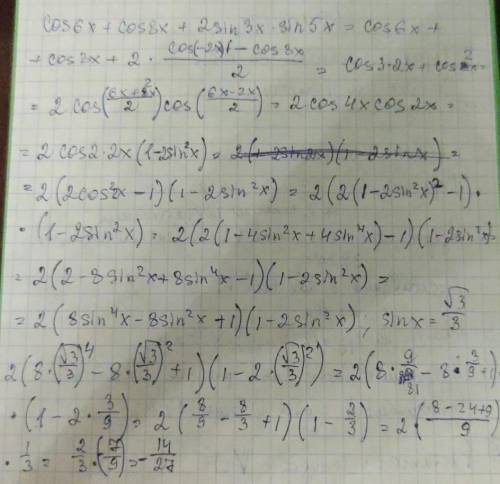 cos6x + cos8x + 2sin3x·sin5x = cos6x +
+ cos8x + 2 · (cos(-2x) - cos8x)/2 = cos3·2x + cos2x =
= 2cos((6x+2x)/2)cos((6x-2x)/2) = 2cos4xcos2x =
= 2cos2·2x(1-2sin²x) = 2(1-2sin2x)(1-2sinx) =
= 2(2cos²2x-1)(1-2sin²x) = 2(2(1-2sin²x)²-1)·
·(1-2sin²x) = 2(2(1-4sin²x+4sin⁴x)-1)(1-2sin²x) =
= 2(2-8sin²x+8sin⁴x-1)(1-2sin²x) =
= 2(8sin⁴x-8sin²x+1)(1-2sin²x); sinx = √3/3
2(8·(√3/3)⁴-8·(√3/3)²+1)(1-2·(√3/3)²) = 2(8·9/81-8·3/9+1)·
·(1-2·3/9) = 2(8/9-8/3+1)(1-2/3) = 2·((8-24+9)/9)
·1/3 = 2/3·(-7/9) = -14/27